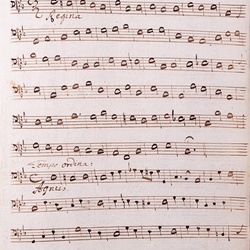 Regina
Tempo ordina:
Agnus.